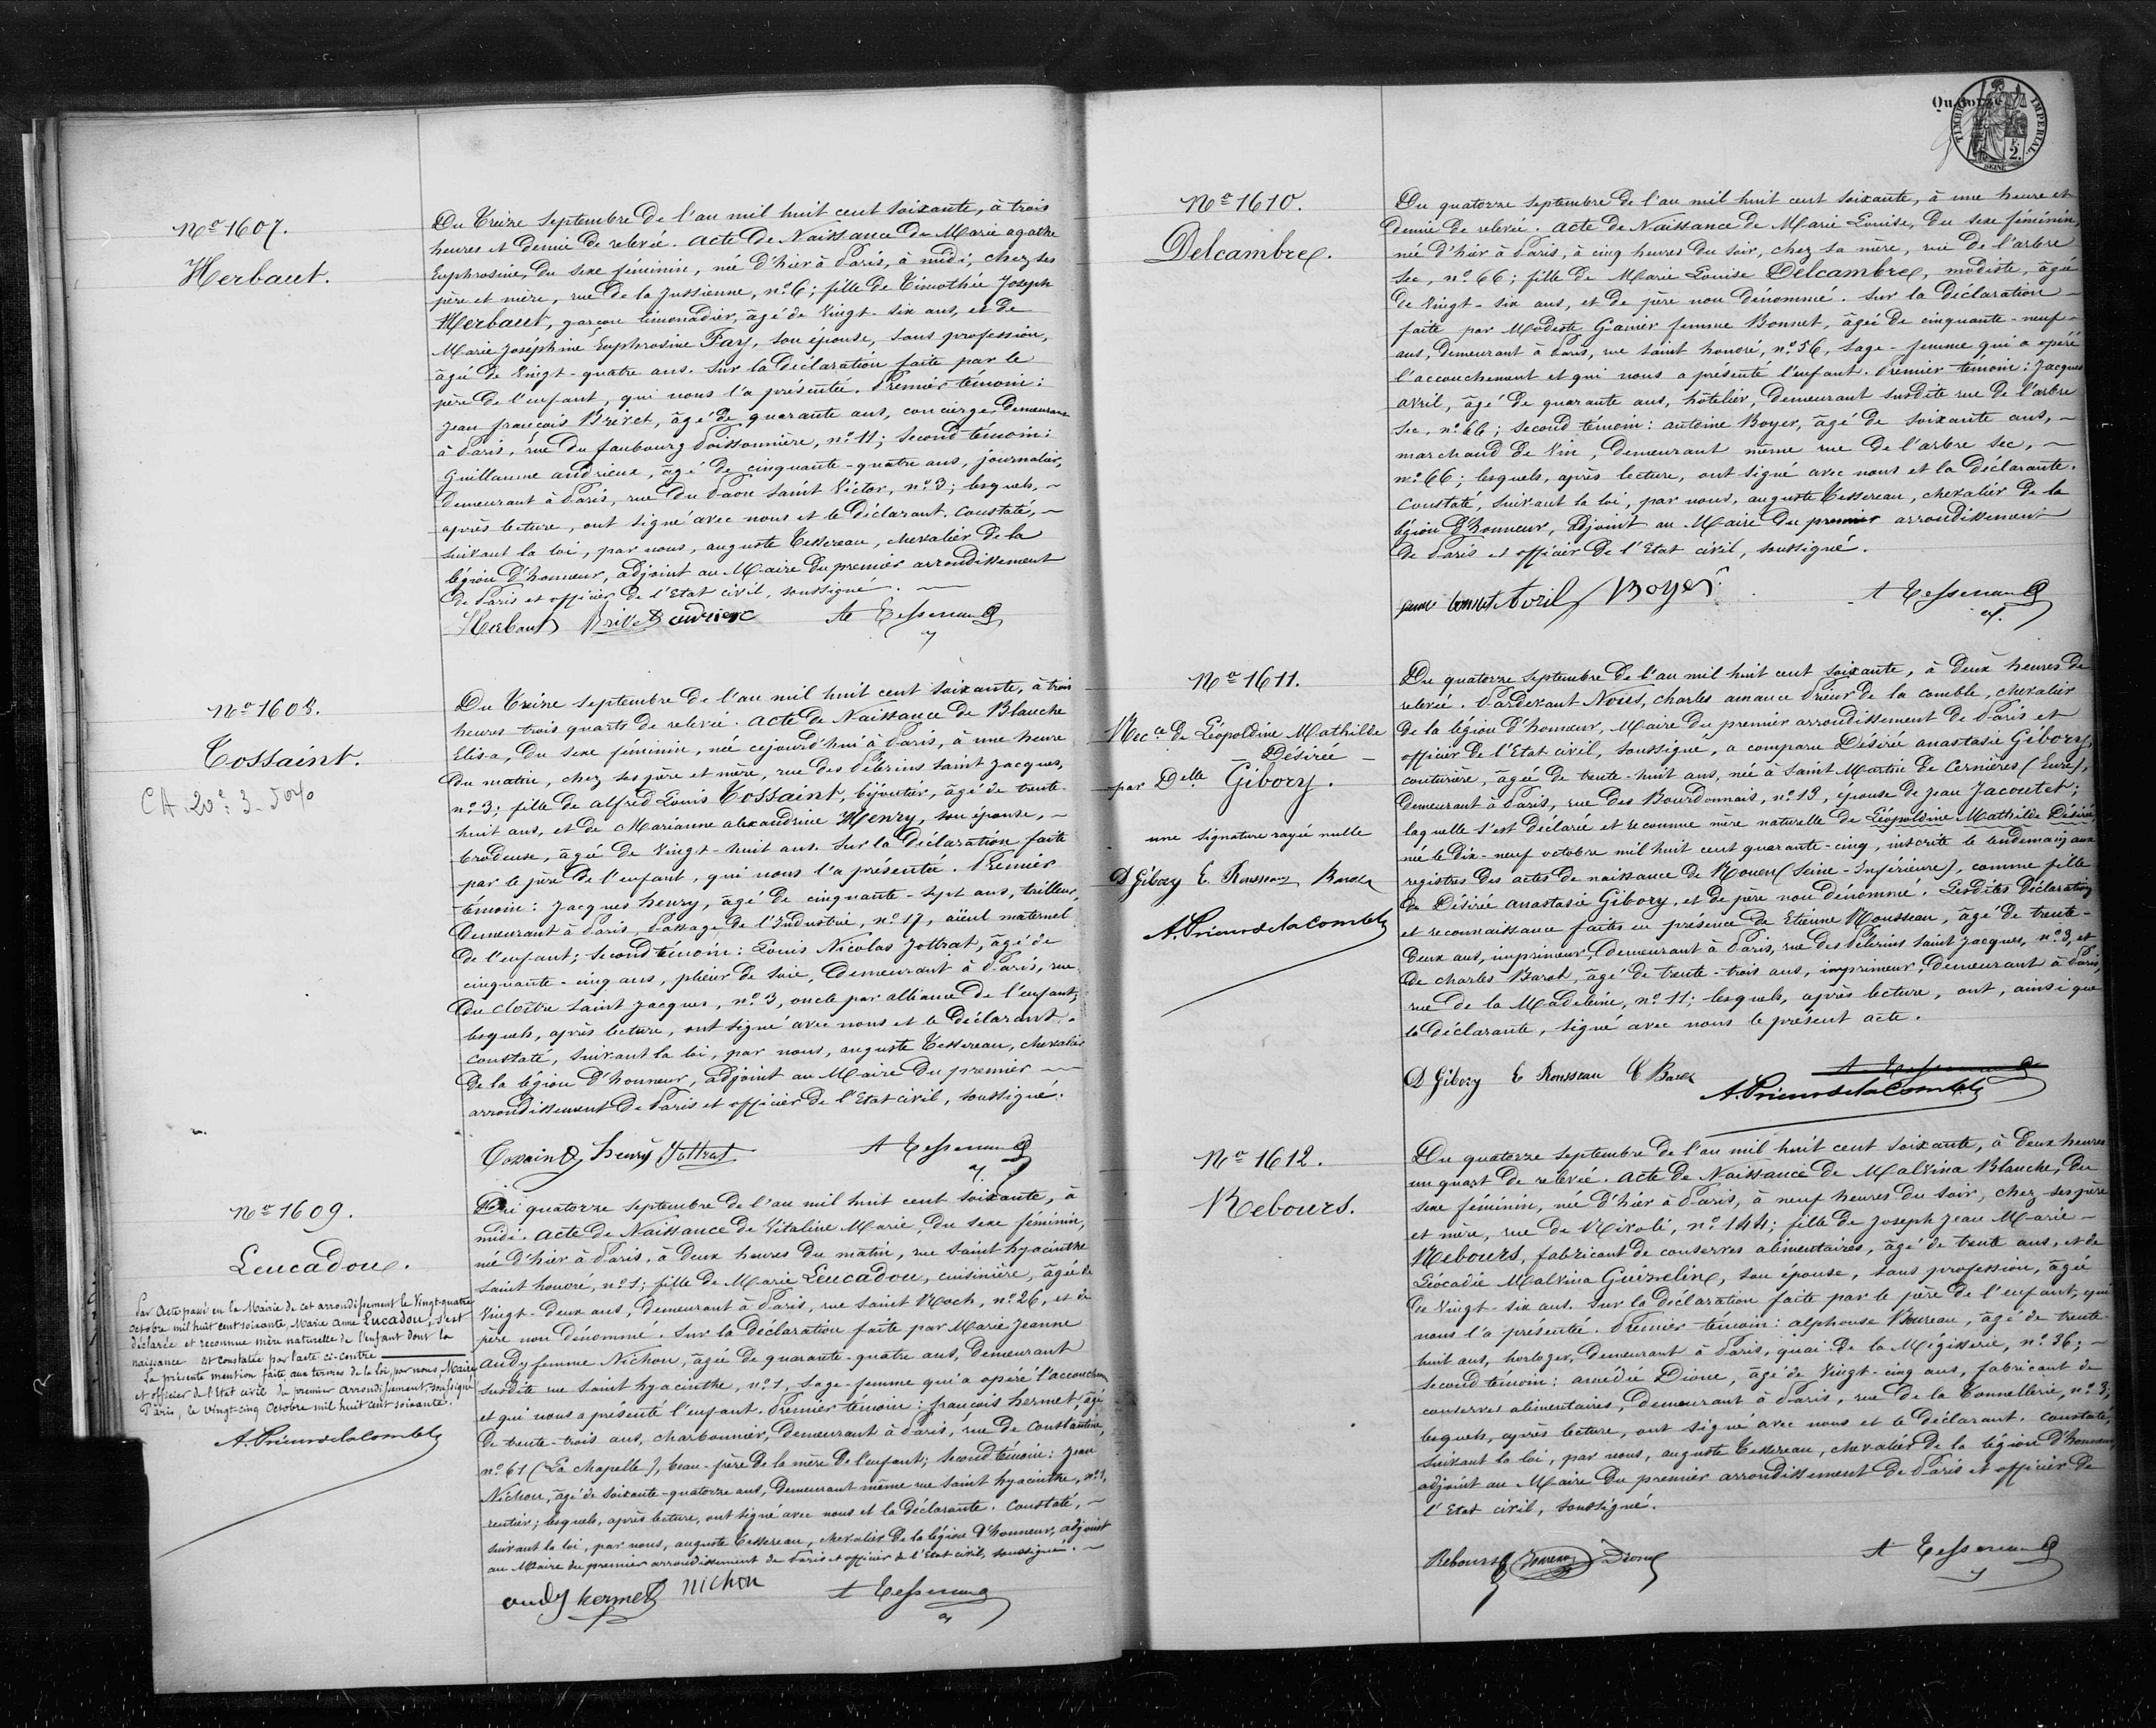 No 1607.
Herbaut.
Du treize septembre de l'an mil huit cent soixante, à trois
heures et demie de relevée. acte de Naissance de Marie agathe
Euphrosine, du sexe féminin, née d'hier à Paris, à midi, chez ses
père et mère, rue de la Jussienne, no 6; fille de Timothée Joseph
Herbaut, garçon limonadier, âgé de vingt-six ans, et de
Marie Joséphine Euphrosine Fary, son épouse, sans profession,
âgée de vingt-quatre ans. Sur la déclaration faite par le
père de l'enfant, qui nous l'a présentée. Premier témoin:
Jean françois Brivet, âgé de quarante ans, concierge, demeurant
à Paris, rue du faubourg Poissonnière, no 11; second témoin:
Guillaume andrieux, âgé de cinquante-quatre ans, journalier,
demeurant à Paris, rue du Paon saint Victor, no 3; lesquels,
après lecture, ont signé avec nous et le déclarant. Constaté,
suivant la loi, par nous, auguste Tessereau, chevalier de la
légion d'honneur, adjoint au Maire du premier arrondissement
de Paris et officier de l'Etat civil, soussigné.
Herbaut Brivet andrieux A Tessereau
No 1608.
Tossaint.
CA. 20c 3-
Du treize septembre de l'an mil huit cent soixante, à trois
heures trois quarts de relevée. acte de Naissance de Blanche
Elisa, du sexe féminin, née cejourd'hui à Paris, à une heure
du matin, chez ses père et mère, rue des Pélerins saint Jacques,
no 3; fille de alfred Louis Tossaint, bijoutier, âgé de trente-
huit ans, et de Marianne alexandrine Henry, son épouse,
brodeuse, âgée de vingt-huit ans. Sur la déclaration faite
par le père de l'enfant, qui nous l'a présentée. Premier
témoin: Jacques henry, âgé de cinquante-sept ans, tailleur,
demeurant à Paris, Passage de l'Industrie, no 17, aïeul maternel
de l'enfant; second témoin: Louis Nicolas Jottrat, âgé de
cinquante-cinq ans, plieur de soie, demeurant à Paris, rue
du cloître saint Jacques, no 3, oncle par alliance de l'enfant;
lesquels, après lecture, ont signé avec nous et le déclarant.
constaté, suivant la loi, par nous, auguste Tessereau, chevalier
de la légion d'honneur, adjoint au Maire du premier
arrondissement de Paris et officier de l'Etat civil, soussigné.
Tossaint henry Jottrat A Tessereau
No 1609.
Leucadou.
Par acte passé en la Mairie de cet arrondissement le vingt-quatre
octobre mil huit cent soixante, Marie Anne Lucadou, s'est
déclarée et reconnue mère naturelle de l'enfant dont la
naissance est constatée par l'acte ci-contre
La présente mention faite aux termes de la loi, par nous, Maire
et officier de l'Etat civil du premier arrondissement, soussigné
Paris, le vingt-cinq Octobre mil huit cent soixante.
A. Prieur de la Comble
Du quatorze septembre de l'an mil huit cent soixante, à
midi. acte de Naissance de Vitaline Marie, du sexe féminin,
née d'hier à Paris, à deux heures du matin, rue saint hyacinthe
saint honoré, no 1; fille de Marie Leucadou, cuisinière, âgée de
vingt-deux ans, demeurant à Paris, rue saint Roch, no 26, et de
père non dénommé. Sur la déclaration faite par Marie Jeanne
audy femme Nichon, âgée de quarante-quatre ans, demeurant
susdite rue saint hyacinthe, no 1, sage-femme qui a opéré l'accouchem
et qui nous a présenté l'enfant. Premier témoin: françois hermet, âgé
de trente-trois ans, charbonnier, demeurant à Paris, rue de Constantine,
no 61 (La chapelle), beau-père de la mère de l'enfant; second témoin: Jean
Nichon, âgé de soixante-quatorze ans, demeurant même rue saint hyacinthe, no 1,
rentier; lesquels, après lecture, ont signé avec nous et la déclarante. Constaté,
suivant la loi, par nous, auguste Tessereau, chevalier de la légion d'honneur, adjoint
au Maire du premier arrondissement de Paris et officier de l'Etat civil, soussigné.
audy hermet nichon A Tessereau
TIMBRE IMPERIAL
SEINE
2.
No 1610.
Delcambre.
Du quatorze septembre de l'an mil huit cent soixante, à une heure et
demie de relevée. acte de Naissance de Marie Louise, du sexe féminin,
née d'hier à Paris, à cinq heures du soir, chez sa mère, rue de l'arbre
sec, no 66; fille de Marie Louise Delcambre, modiste, âgée
de vingt-six ans, et de père non dénommé. Sur la déclaration
faite par Modeste Garnier femme Bonnet, âgée de cinquante-neuf
ans, demeurant à Paris, rue saint honoré, no 56, sage-femme qui a opéré
l'accouchement et qui nous a présenté l'enfant. Premier témoin: Jacques
avril, âgé de quarante ans, hôtelier, demeurant susdite rue de l'arbre
sec, no 66; second témoin: antoine Boyer, âgé de soixante ans,
marchand de vin, demeurant même rue de l'arbre sec,
no 66; lesquels, après lecture, ont signé avec nous et la déclarante.
Constaté, suivant la loi, par nous, auguste Tessereau, chevalier de la
légion d'honneur, adjoint au Maire du premier arrondissement
de Paris et officier de l'Etat civil, soussigné.
femme bonnet Avril Boyer A Tessereau
No 1611.
Recce de Léopoldine Mathilde
Désirée
par Delle Gibory.
une signature rayée nulle
D Gibory E. Rousseau Barat
A. Prieur de la Comble
Du quatorze septembre de l'an mil huit cent soixante, à deux heures de
relevée. Pardevant Nous, charles amance Prieur de la comble, chevalier
de la légion d'honneur, Maire du premier arrondissement de Paris et
officier de l'Etat civil, soussigné, a comparu Désirée anastasie Gibory,
couturière, âgée de trente-huit ans, née à Saint Martin de Cernières (Eure),
demeurant à Paris, rue des Bourdonnais, no 13, épouse de Jean Jacoutet;
laquelle s'est déclarée et reconnue mère naturelle de Léopoldine Mathilde Désirée,
née le dix-neuf octobre mil huit cent quarante-cinq, inscrite le lendemain aux
registres des actes de naissance de Rouen (Seine-Inférieure), comme fille
de Désirée anastasie Gibory, et de père non dénommé. Lesdites déclaration
et reconnaissance faites en présence de Etienne Rousseau, âgé de trente-
deux ans, imprimeur, demeurant à Paris, rue des Pélerins saint Jacques, no 3, et
de charles Barat, âgé de trente-trois ans, imprimeur, demeurant à Paris,
rue de la Madeleine, no 11; lesquels, après lecture, ont, ainsi que
la déclarante, signé avec nous le présent acte.
D Gibory E Rousseau C Barat A Tessereau
A. Prieur de la Comble
No 1612.
Rebours.
Du quatorze septembre de l'an mil huit cent soixante, à deux heures
un quart de relevée. acte de Naissance de Malvina Blanche, du
sexe féminin, née d'hier à Paris, à neuf heures du soir, chez ses père
et mère, rue de Rivoli, no 144; fille de Joseph Jean Marie
Rebours, fabricant de conserves alimentaires, âgé de trente ans, et de
Léocadie Malvina Guezneline, son épouse, sans profession, âgée
de vingt-six ans. Sur la déclaration faite par le père de l'enfant, qui
nous l'a présentée. Premier témoin: alphonse Bureau, âgé de trente-
huit ans, horloger, demeurant à Paris, quai de la Mégisserie, no 36;
second témoin: amédée Dione, âgé de vingt-cinq ans, fabricant de
conserves alimentaires, demeurant à Paris, rue de la Tonnellerie, no 3;
lesquels, après lecture, ont signé avec nous et le déclarant. Constaté,
suivant la loi, par nous, auguste Tessereau, chevalier de la légion d'honneur,
adjoint au Maire du premier arrondissement de Paris et officier de
l'Etat civil, soussigné.
Rebours Dione A Tessereau